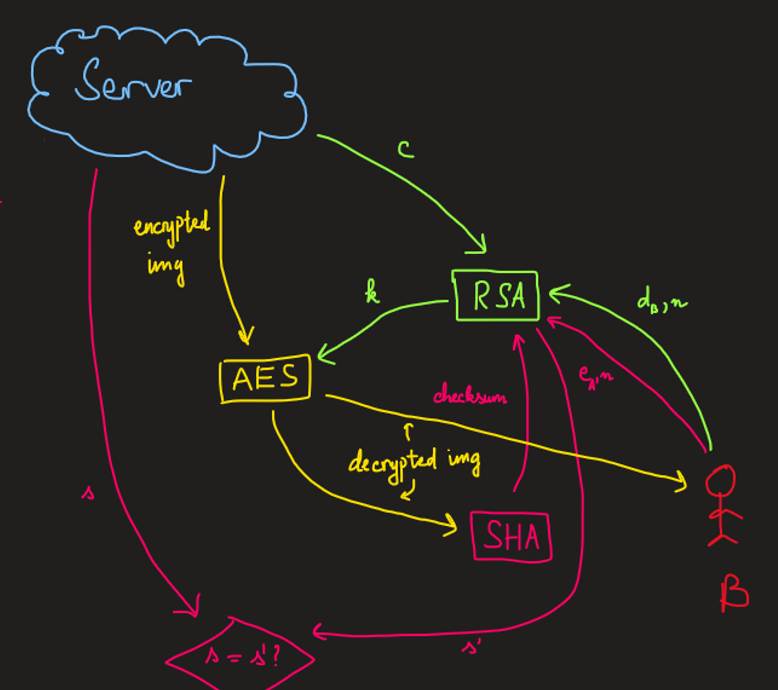 Server
c
encrypted
img
k
RSA
d_B, n
AES
checksum
e_A, n
decrypted img
s
SHA
B
s'
s = s'?